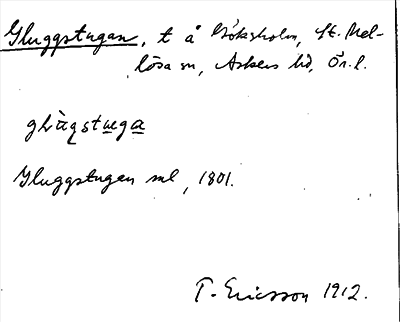 Gluggstugan, t å Göksholm, St. Mel-
lösa sn, Askers hd, Ör. l.
Gluggstugan ml, 1801.
T. Ericsson 1912.